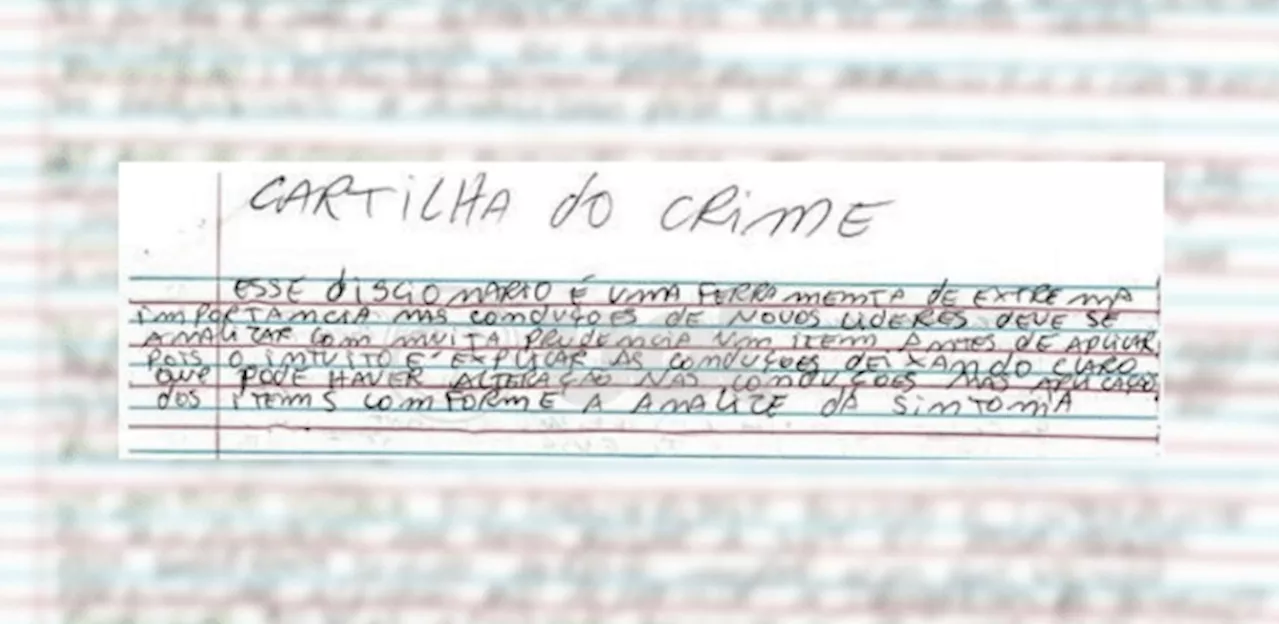 CARTILHA do CRIME
ESSE disCiOMARiO É UMA FERRAMEMTA dE EXTREMA
IMPORTAMCIA MAS COMDUÇOES DE NOVOS LIDERES DEVE SE
AMALIZAR COM MUITA PRUDEMCIA UM ITEM AMTES DE APLICAR
POIS O IMTUITO É EXPLICAR AS COMDUÇOES DEIXAMDO CLARO
QUE PODE HAVER ALTERAÇÃO NAS COMDUÇÕES MAS APLICAÇÃO
dOS ITEMS COMFORME A AMALIZE dA SIMTOMIA